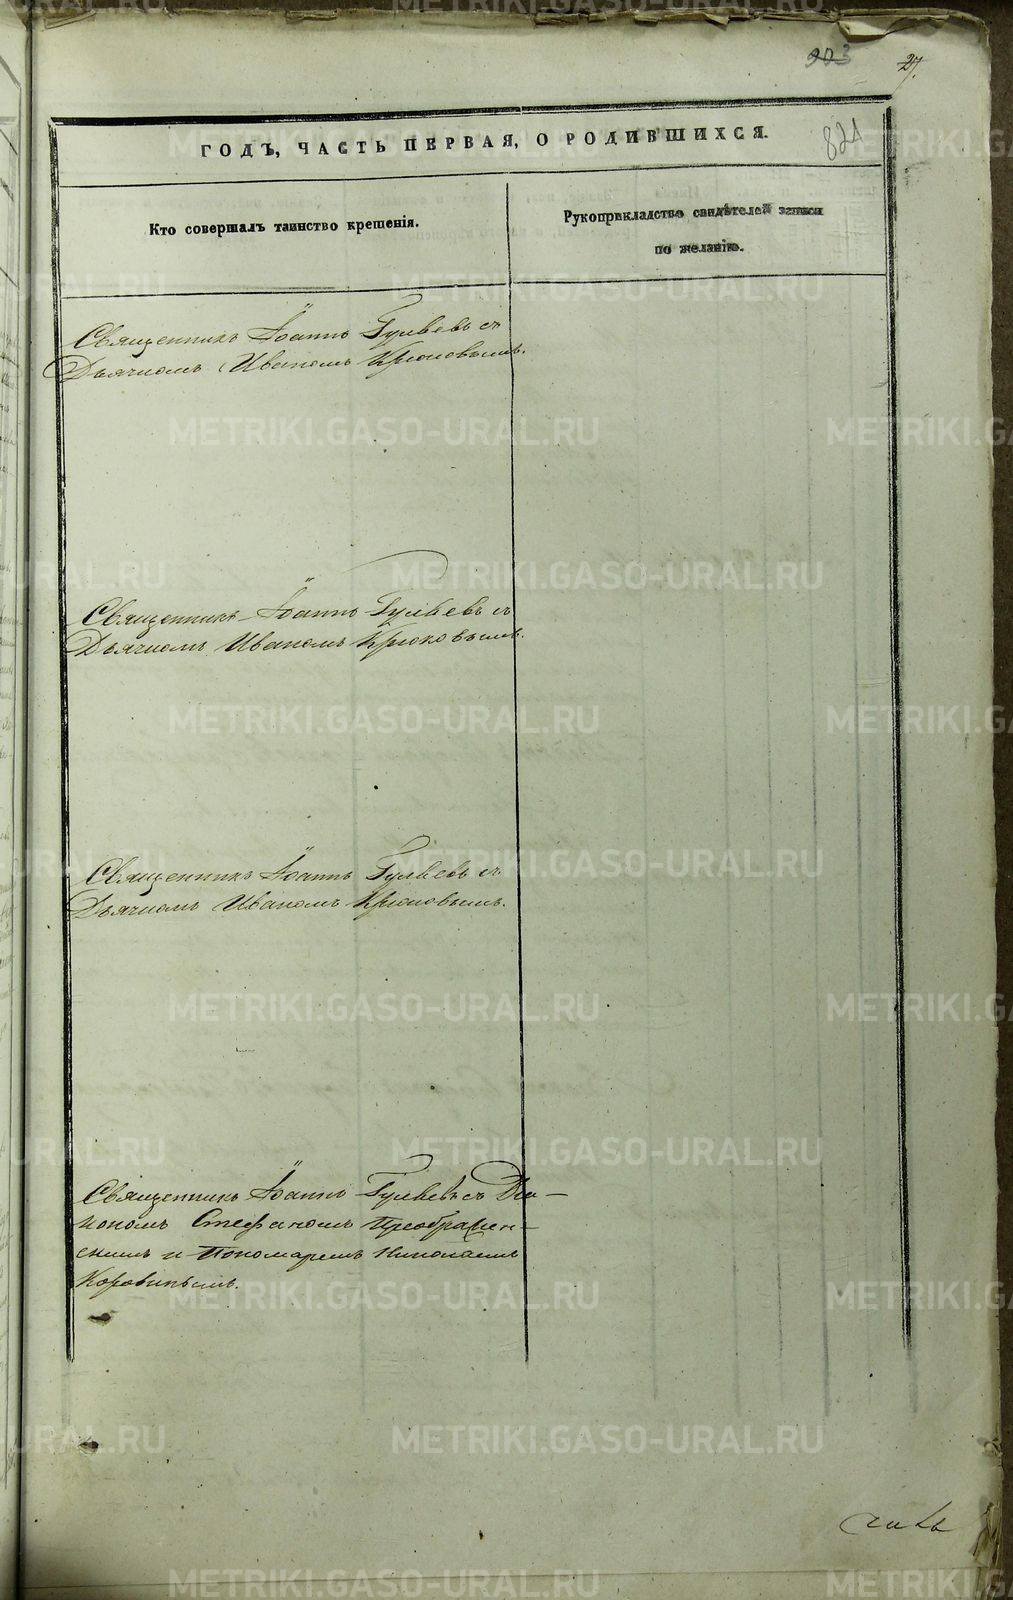 27.
821
ГОДЪ, ЧАСТЬ ПЕРВАЯ, О РОДИВШИХСЯ.
Кто совершалъ таинство крещенія.
Рукоприкладство свидѣтелей записи
по желанію.
Священникъ Іоаннъ Гуляевъ съ
Дьячкомъ Иваномъ Крюковымъ.
Священникъ Іоаннъ Гуляевъ съ
Дьячкомъ Иваномъ Крюковымъ.
Священникъ Іоаннъ Гуляевъ съ
Дьячкомъ Иваномъ Крюковымъ.
Священникъ Іоаннъ Гуляевъ съ Діа-
кономъ Стефаномъ Преображен-
скимъ и Пономаремъ Николаемъ
Коровинымъ.
METRIKI.GASO-URAL.RU